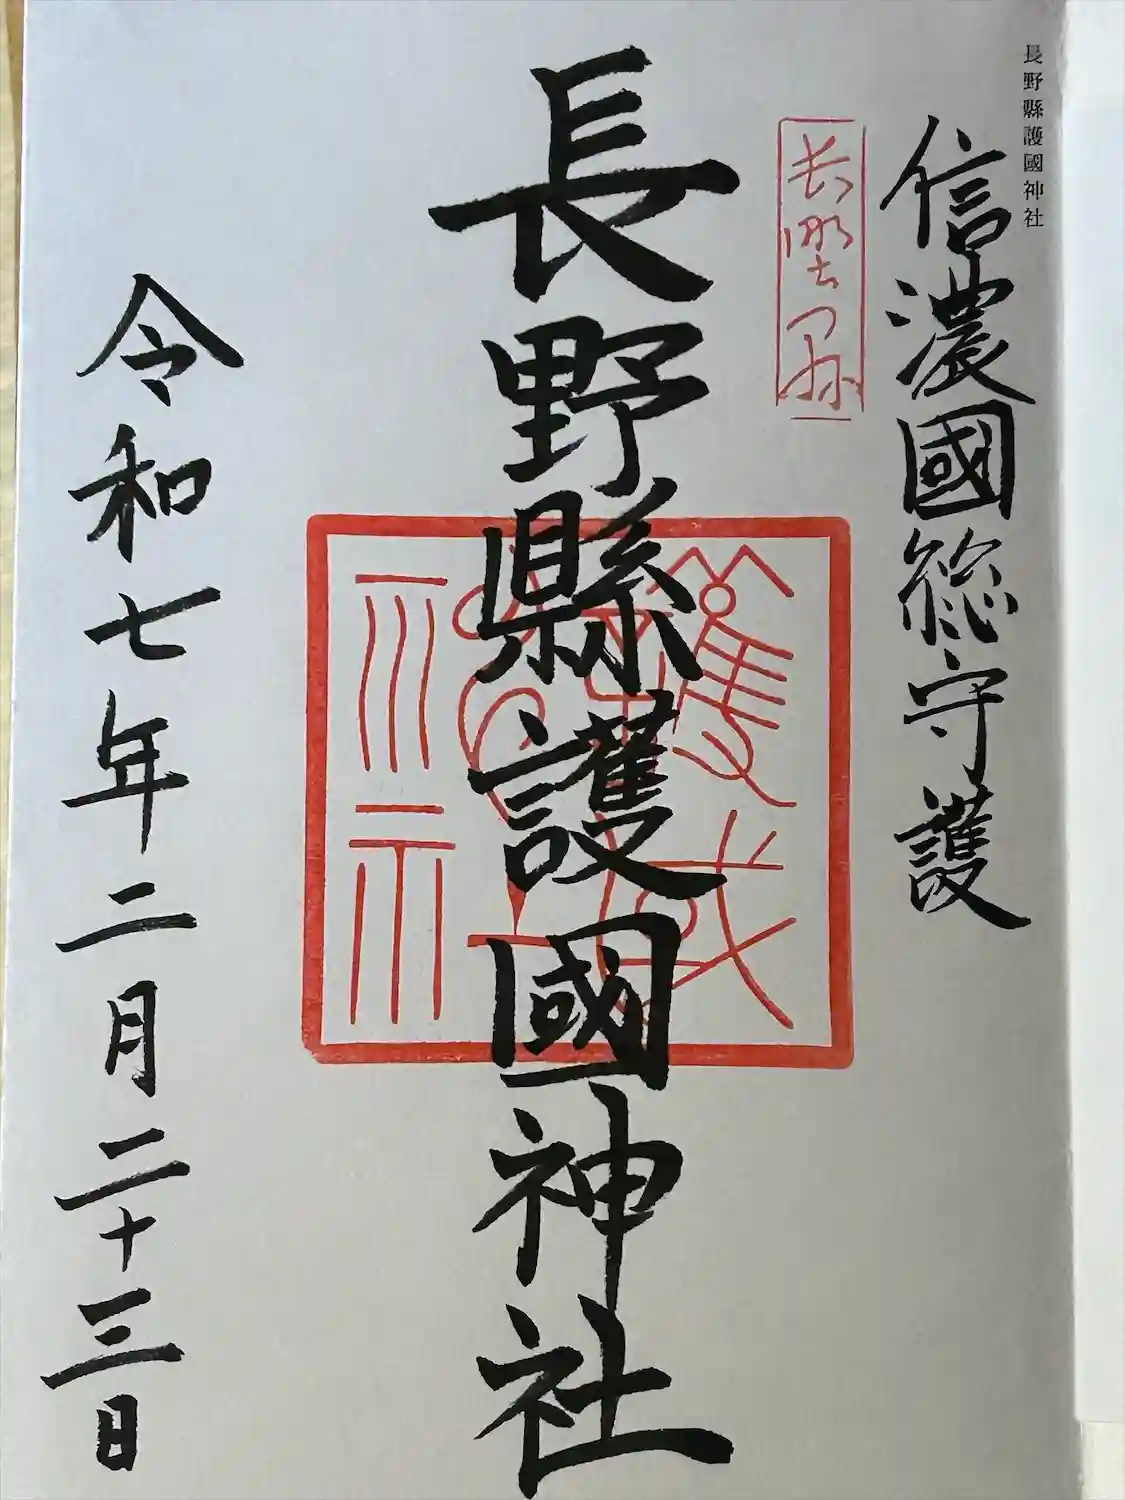 長野縣護國神社
信濃國総守護
長野縣
長野縣護國神社
令和七年二月二十三日